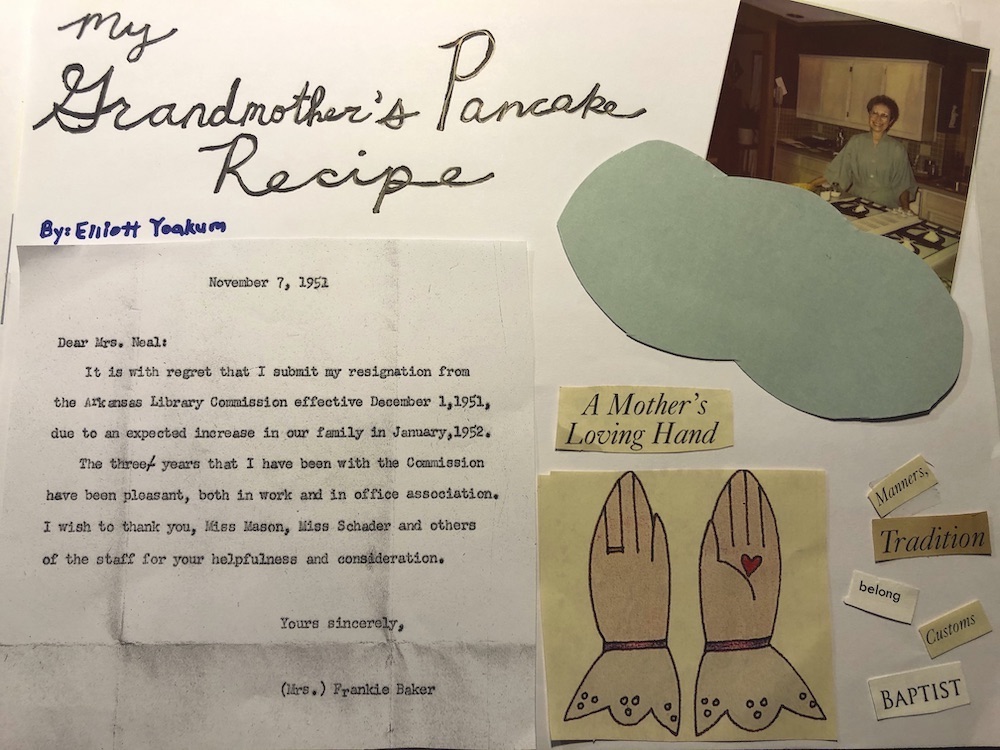 My
Grandmother's Pancake
Recipe
By: Elliott Yoakum
November 7, 1951
Dear Mrs. Neal:
It is with regret that I submit my resignation from
the Arkansas Library Commission effective December 1,1951,
due to an expected increase in our family in January,1952.
The three/ years that I have been with the Commission
have been pleasant, both in work and in office association.
I wish to thank you, Miss Mason, Miss Schader and others
of the staff for your helpfulness and consideration.
Yours sincerely,
(Mrs.) Frankie Baker
A Mother's
Loving Hand
Manners,
Tradition
belong
Customs
BAPTIST